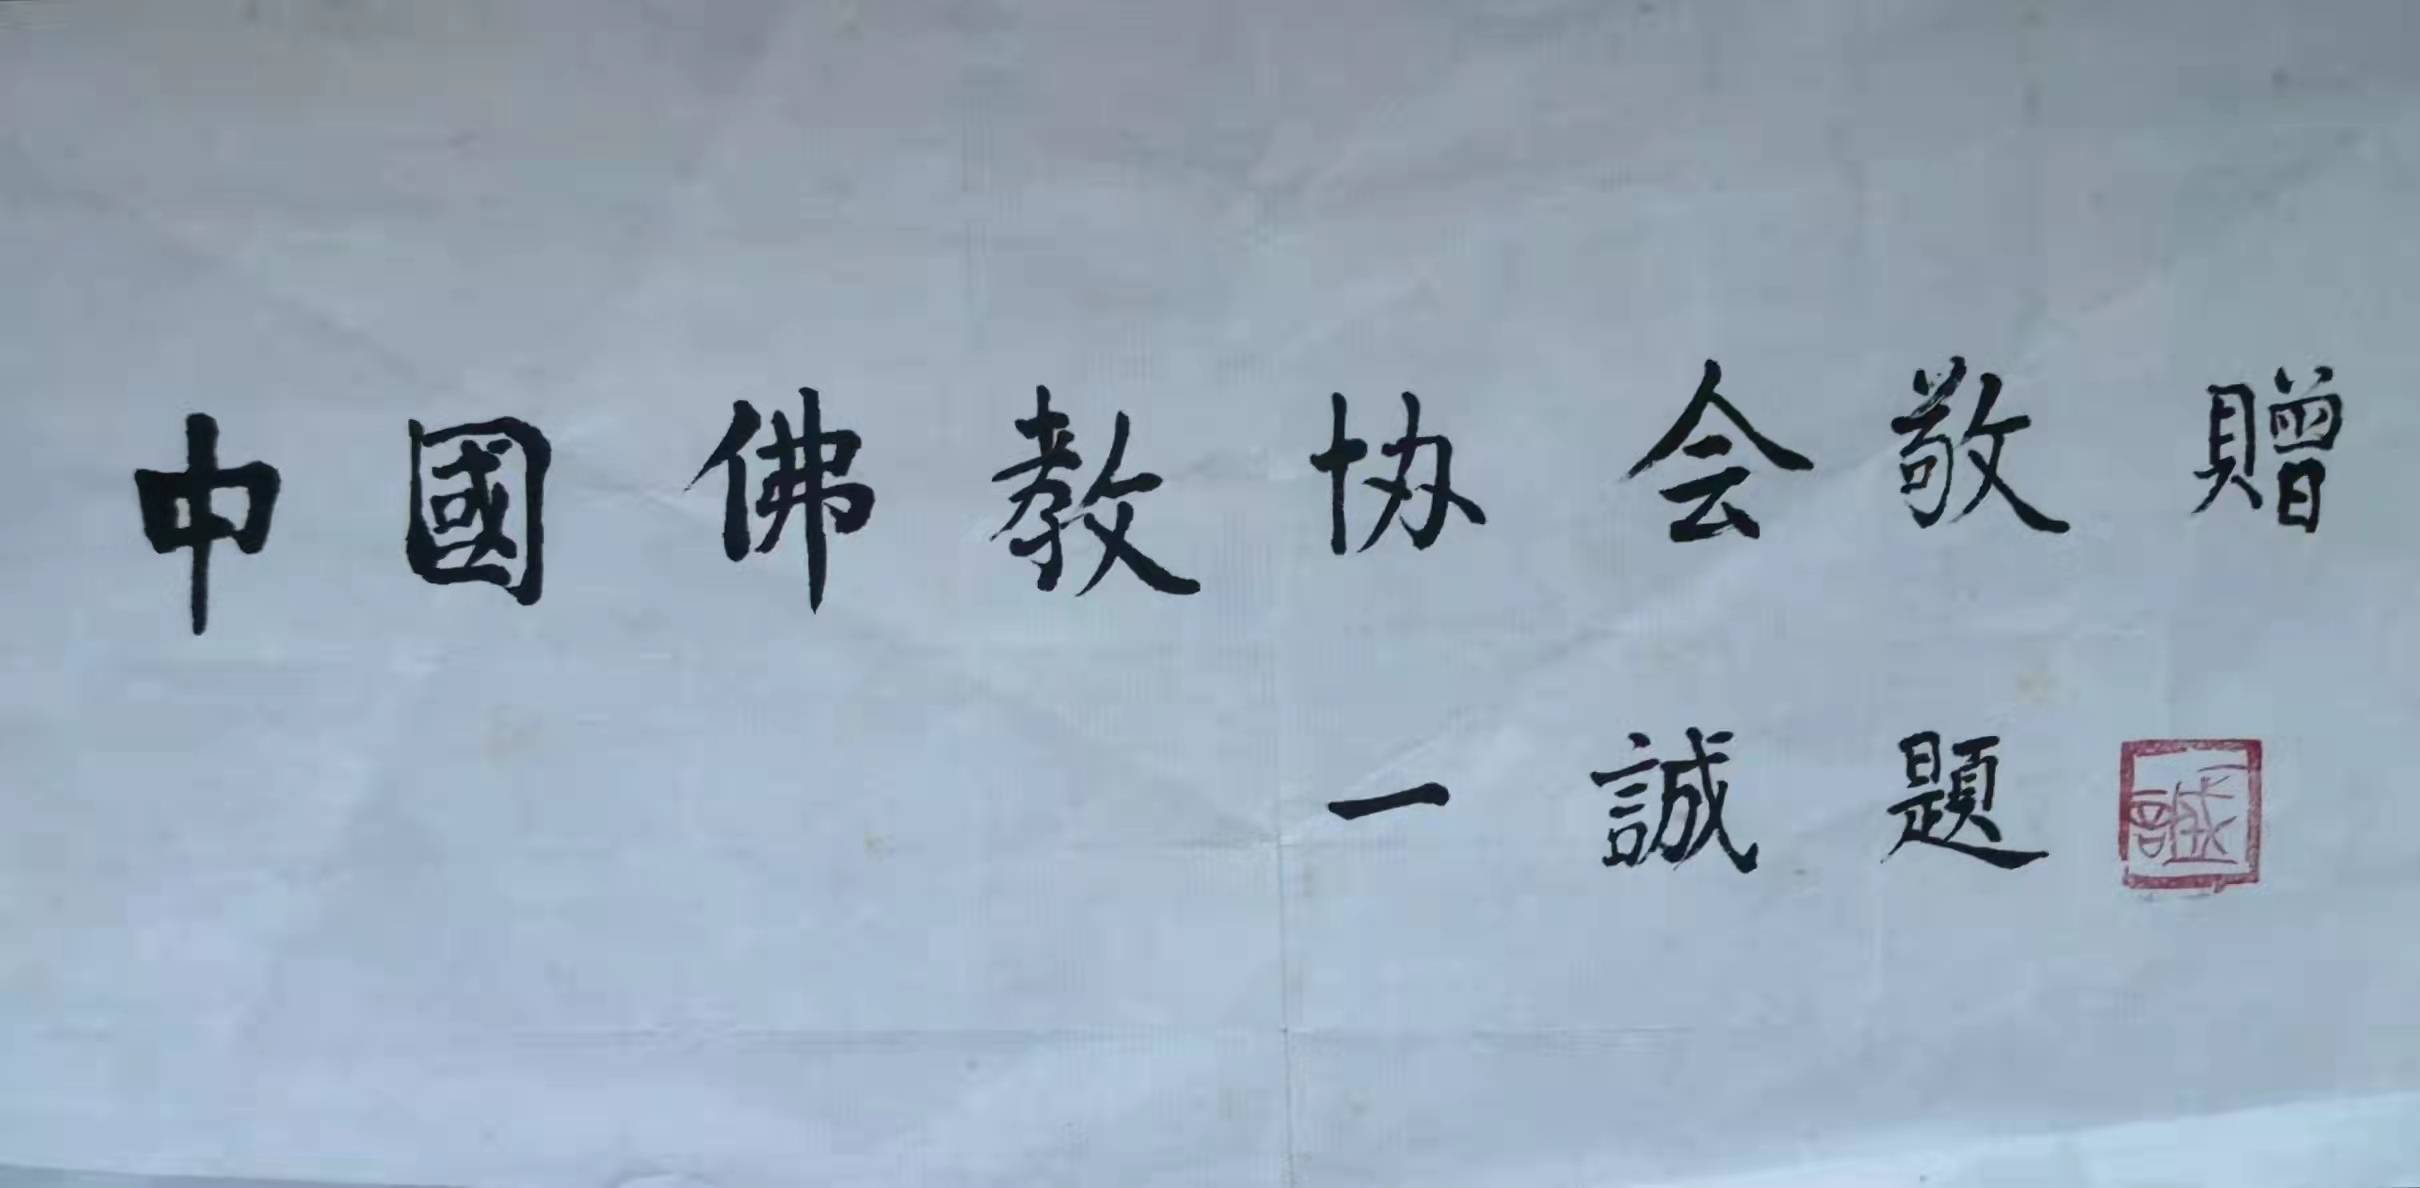 中國佛教协会敬贈
一誠題
一誠